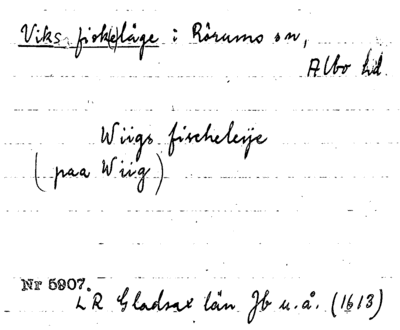 Viks fisk(e)läge i Rörums sn,
Albo hd
Wiigs fischeleije
(paa Wiig)
Nr 5907.
LR Gladsax län Jb u.å. (1613)